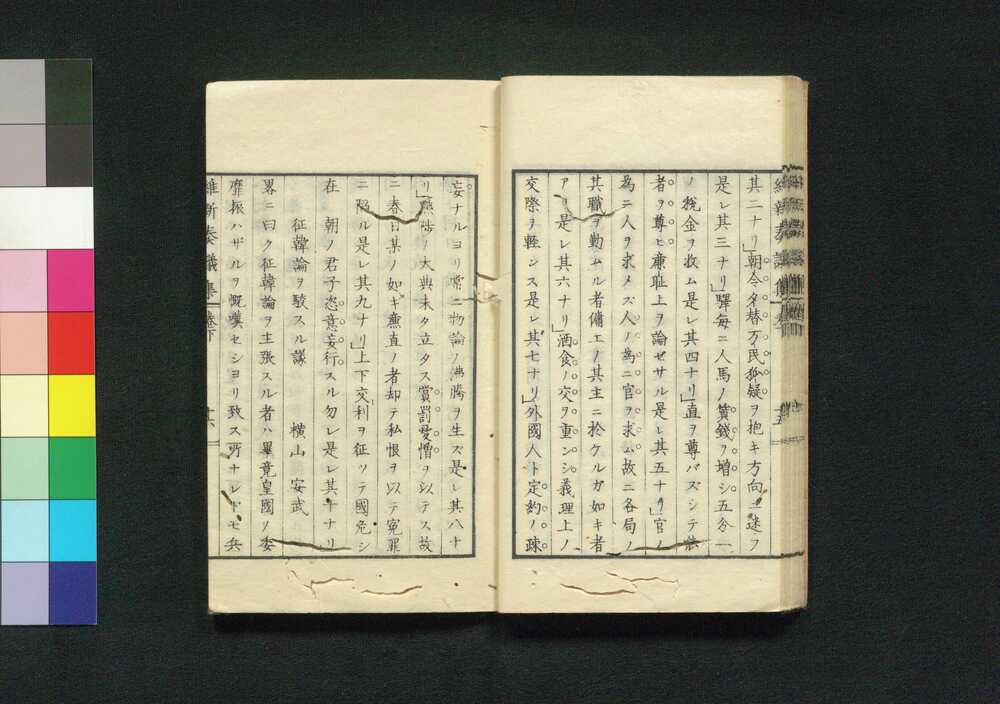 其二ナリ」朝令夕替万民狐疑ヲ抱キ方向ニ迷フ
是レ其三ナリ」驛毎ニ人馬ノ賃錢ヲ増シ五分一
ノ税金ヲ收ム是レ其四ナリ」直ヲ尊バズシテ
者ヲ尊ヒ廉耻上ヲ論ゼサル是レ其五ナリ」官ノ
為ニ人ヲ求メズ人ノ為ニ官ヲ求ム故ニ各局ノ
其職ヲ勤ムル者傭工ノ其主ニ於ケルガ如キ者
アリ是レ其六ナリ」酒食ノ交ヲ重ンシ義理上ノ
交際ヲ軽ンス是レ其七ナリ」外國人ト定約ノ疎
妄ナルヨリ常ニ物論ノ沸騰ヲ生ズ是レ其八ナ
リ」黜陟ノ大典未タ立タス賞罰愛憎ヲ以テス故
ニ春日某ノ如キ廉直ノ者却テ私恨ヲ以テ寃罪
ニ陥ル是レ其九ナリ」上下交利ヲ征ツテ國危シ
在朝ノ君子恣意妄行スル勿レ是レ其十ナリ
征韓論ヲ駁スル議 横山安武
畧ニ曰ク征韓論ヲ主張スル者ハ畢竟皇國ノ委
靡振ハザルヲ慨嘆セシヨリ致ス所ナレドモ兵
維新奏議集 巻下 十六